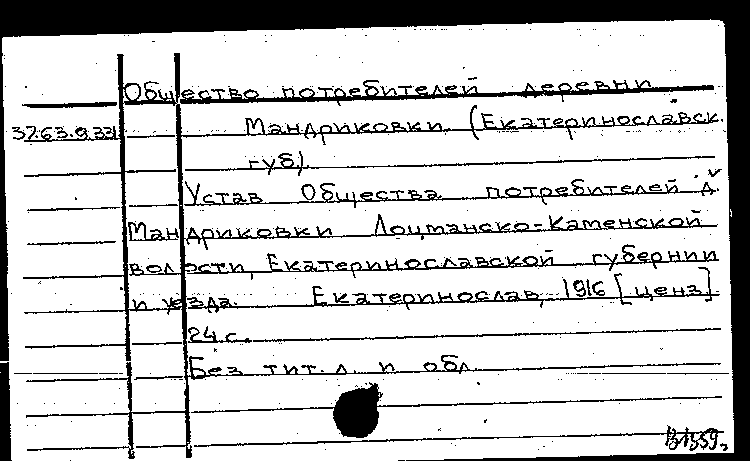 Общество потребителей деревни
37.63.9.331
Мандриковки (Екатеринославск.
губ).
Устав Общества потребителей д.
Мандриковки Лоцманско-Каменской
волости, Екатеринославской губернии
и уезда. Екатеринослав, 1916 [ценз]
24 с.
Без тит. л. и обл.